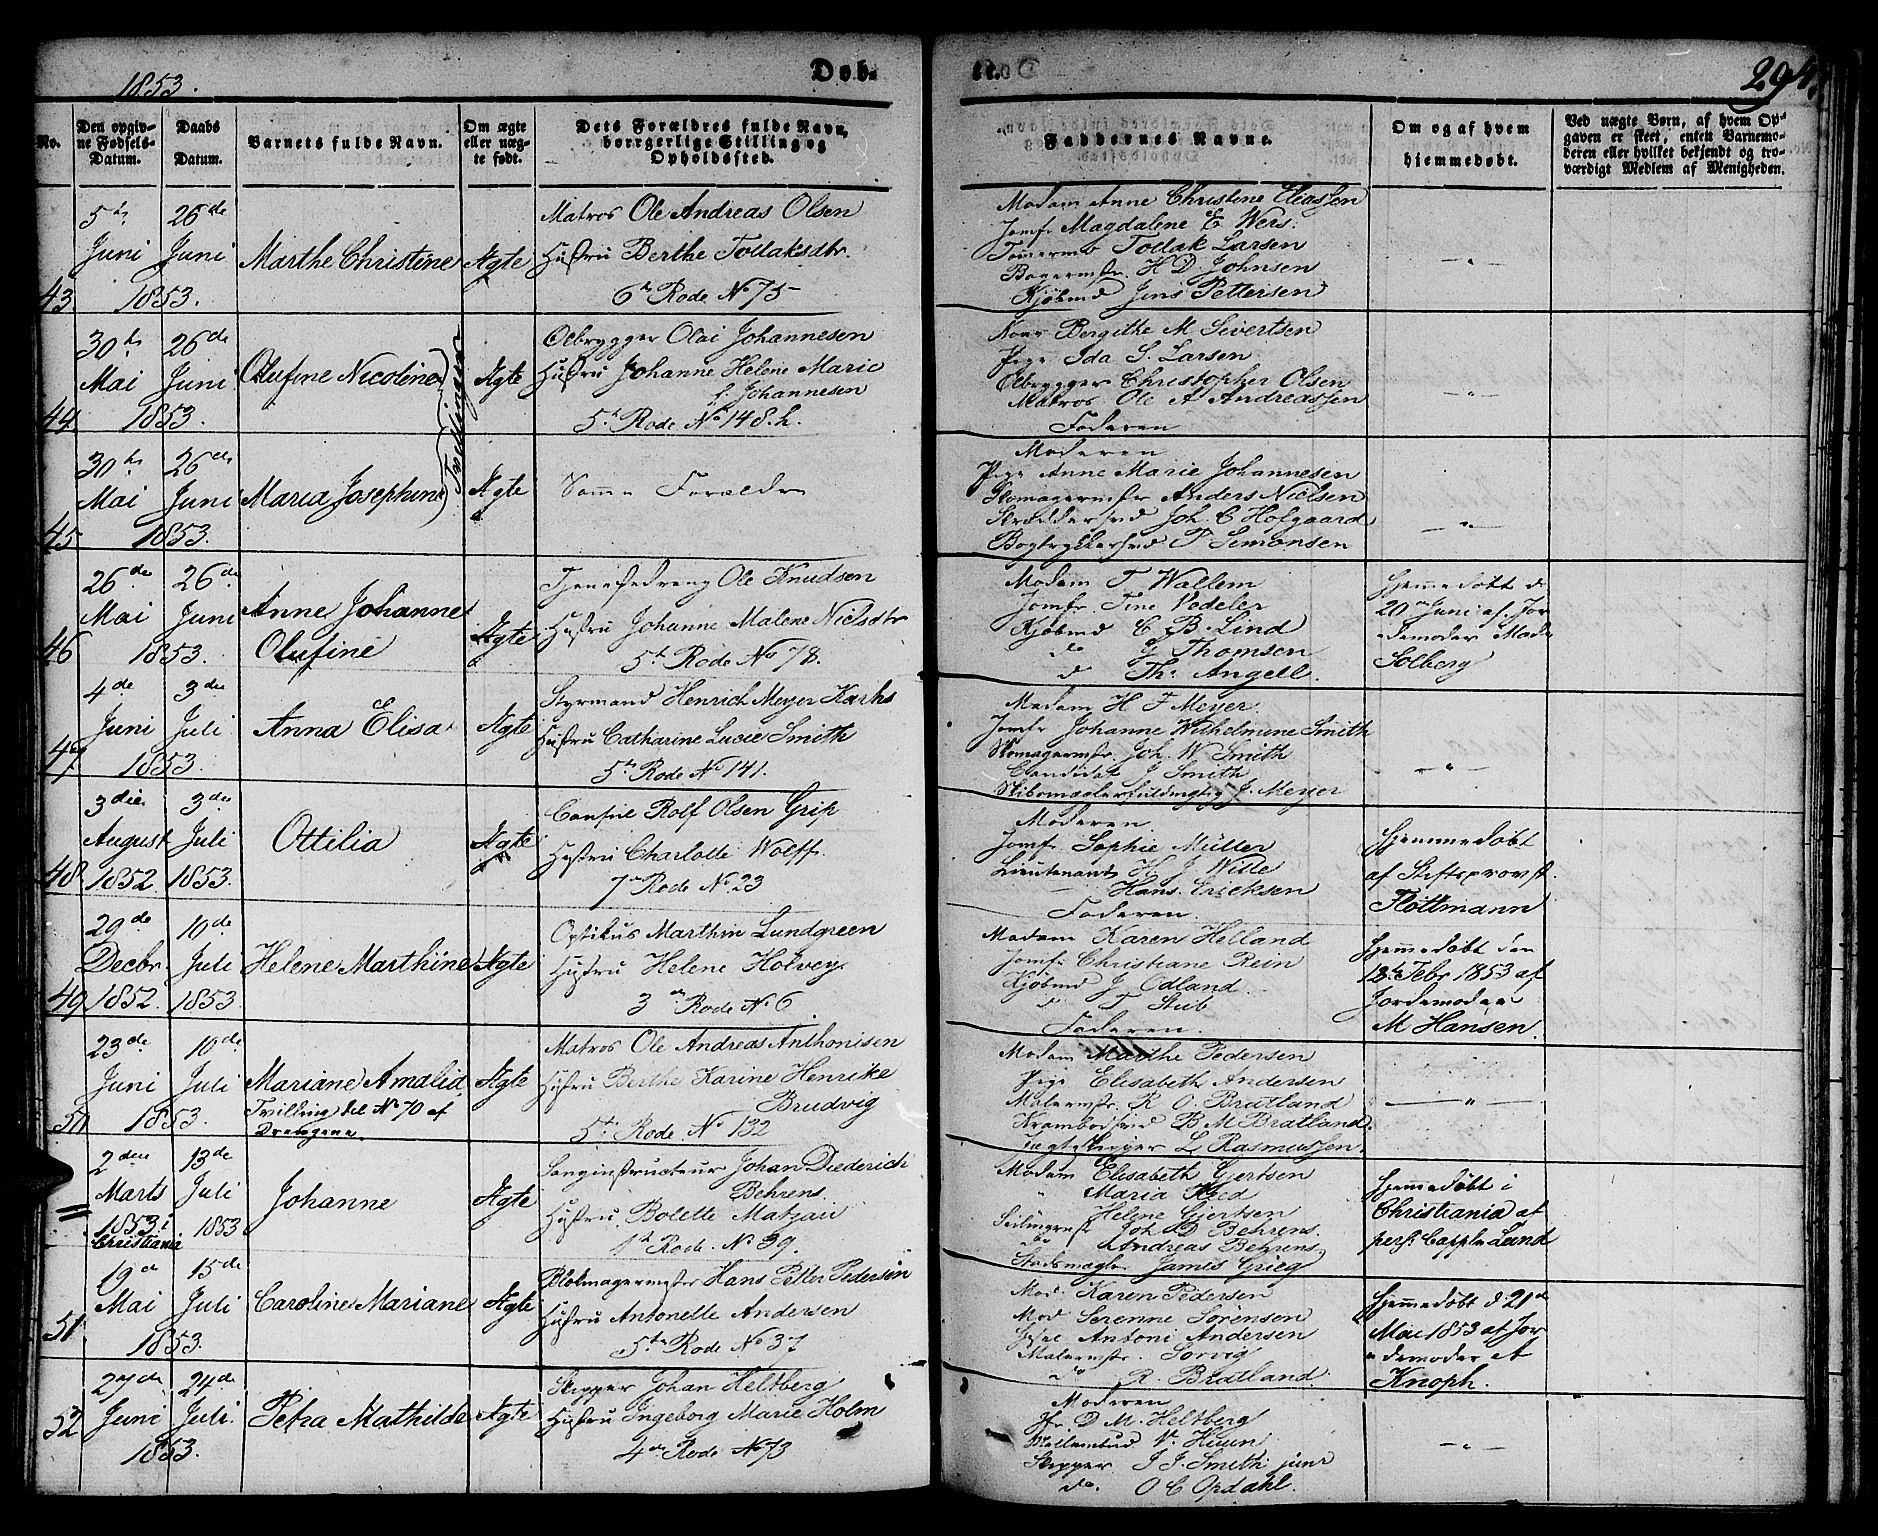 1853.
Døb-
te.
294.
No.
Den opgiv-
ne Fødsels-
Datum.
Daabs
Datum.
Barnets fulde Navn.
Om ægte
eller uæg-
te født.
Dets Forældres fulde Navn,
borgerlige Stilling og
Opholdssted.
Faddernes Navne.
Om og af hvem
hjemmedøbt.
Ved uægte Børn, af hvem Op-
gaven er skeet, enten Barnemo-
deren eller hvilket bekjendt og tro-
værdigt Medlem af Menigheden.
43.
5te
Juni
26de
Juni
1853.
Marthe Christine
Ægte
Matros Ole Andreas Olsen
Hustru Berthe Tollaksdtr.
6te Rode No 75
Madam Anne Christine Eliassen
Jomfr Magdalene E Wers.
Tømermd Tollak Larsen
Bagermstr. H D Johnsen
Kjøbmd Jens Pettersen
— " —
44.
30te
Mai
26de
Juni
1853.
Olufine Nicoline
Tvillinger
Ægte
Ølbrygger Olai Johannesen
Hustru Johanne Helene Marie
f. Johannesen
5te Rode No 148.b.
Kone Bergithe M Sivertsen
Pige Ida S. Larsen
Ølbrygger Christopher Olsen
Matros Ole A Andreassen
Faderen
— " —
45
30te
Mai
26de
Juni
1853.
Maria Josephine
Ægte
Samme Forældre
Moderen
Pige Anne Marie Johannesen
Skomagermstr Anders Nielsen
Skrædersvd Joh. C Hofgaard
Bogtrykkersvd P Simonsen
— " —
46
26de
Mai
26de
Juni
1853.
Anne Johanne
Olufine
Ægte
Tjenestedreng Ole Knudsen
Hustru Johanne Malene Nielsdtr
5te Rode No 78.
Madam T Wallem
Jomfr. Tine Vedeler
Kjøbmd C B. Lind
do G Thomsen
d Th. Angell.
Hjemmedøbt d
20 Juni af Jor
demoder Made
Solberg
47
4de
Juni
3die
Juli
1853.
Anna Elisa
Ægte
Styrmand Henrich Meyer Karhs
Hustru Catharine Lucie Smith
5te Rode No 141.
Madam H F Meyer.
Jomfr Johanne Wilhelmine Smith
Skomagermstr. Joh. W Smith
Candidat J Smith
Skibsmægler J. Meyer
— " —
48
3die
August
1852.
3die
Juli
1853.
Ottilia
Ægte
Consul Rolf Olsen Grip
Hustru Charlotte Wolff.
7de Rode No 23
Moderen
Jomfr. Sophie Müller
Lieutenant H. J Wille
Hans Ericksen
Faderen.
Hjemmedøbt
af Stiftsprovst.
Flottmann
49
29de
Decbr.
1852.
10de
Juli
1853.
Helene Marthine
Ægte
Optikus Marthin Lundgreen
Hustru Helene Holvey.
3die Rode No 6.
Madam Karen Helland
Jomfr Christiane Rein
Kjøbmd J Odland.
d T Stub
Faderen.
Hjemmedøbt den
18de Febr 1853 af
Jordemoder
M Hansen.
50
23de
Juni
10de
Juli
1853.
Mariane Amalia
Tvilling del No 70 af
Drengene.
Ægte
Matros Ole Andreas Anthonisen
Hustru Berthe Karine Henrike
Brudvig
5te Rode No 132
Madam Marthe Pedersen
Pige Elisabeth Andersen
Malermstr. R O. Bratland
Krambodsvd B M Bratland
Jægteskipper L Rasmussen.
— " —
2den
Marts
1853 i
Christiania
13de
Juli
1853
Johanne
Ægte
Sanginstructeur Johan Diederich
Behrens
Hustru Bolette Matzau
1ste Rode No 39.
Madam Elisabeth Gjertsen
" Maria Reed
Helene Gjertsen
Joh D Behrens.
do Andreas Behrens.
Stadsmægler James Grieg
Hjemmedøbt i
Christiania af
pers. Cappln Lund
51
19de
Mai
15de
Juli
1853.
Caroline Mariane
Ægte
Blokmagermster Hans Petter Pedersen
Hustru Antonette Andersen
5te Rode No 37
Mad. Karen Pedersen
Mad Serenne Sørensen
Antoni Andersen
Malermstr. Sørvig
do R. Bratland.
Hjemmedøbt d 21de
Mai 1853 af Jor
demoder af
Knoph.
52
27de
Juni
24de
Juli.
1853.
Petra Mathilde
Ægte
Skipper Johan Heltberg
Hustru Ingeborg Marie Holm
4de Rode No 73
Moderen
Jfr D M. Heltberg
N. Huun
Skipper J J. Smith junr
do. O C Opdahl.
— " —